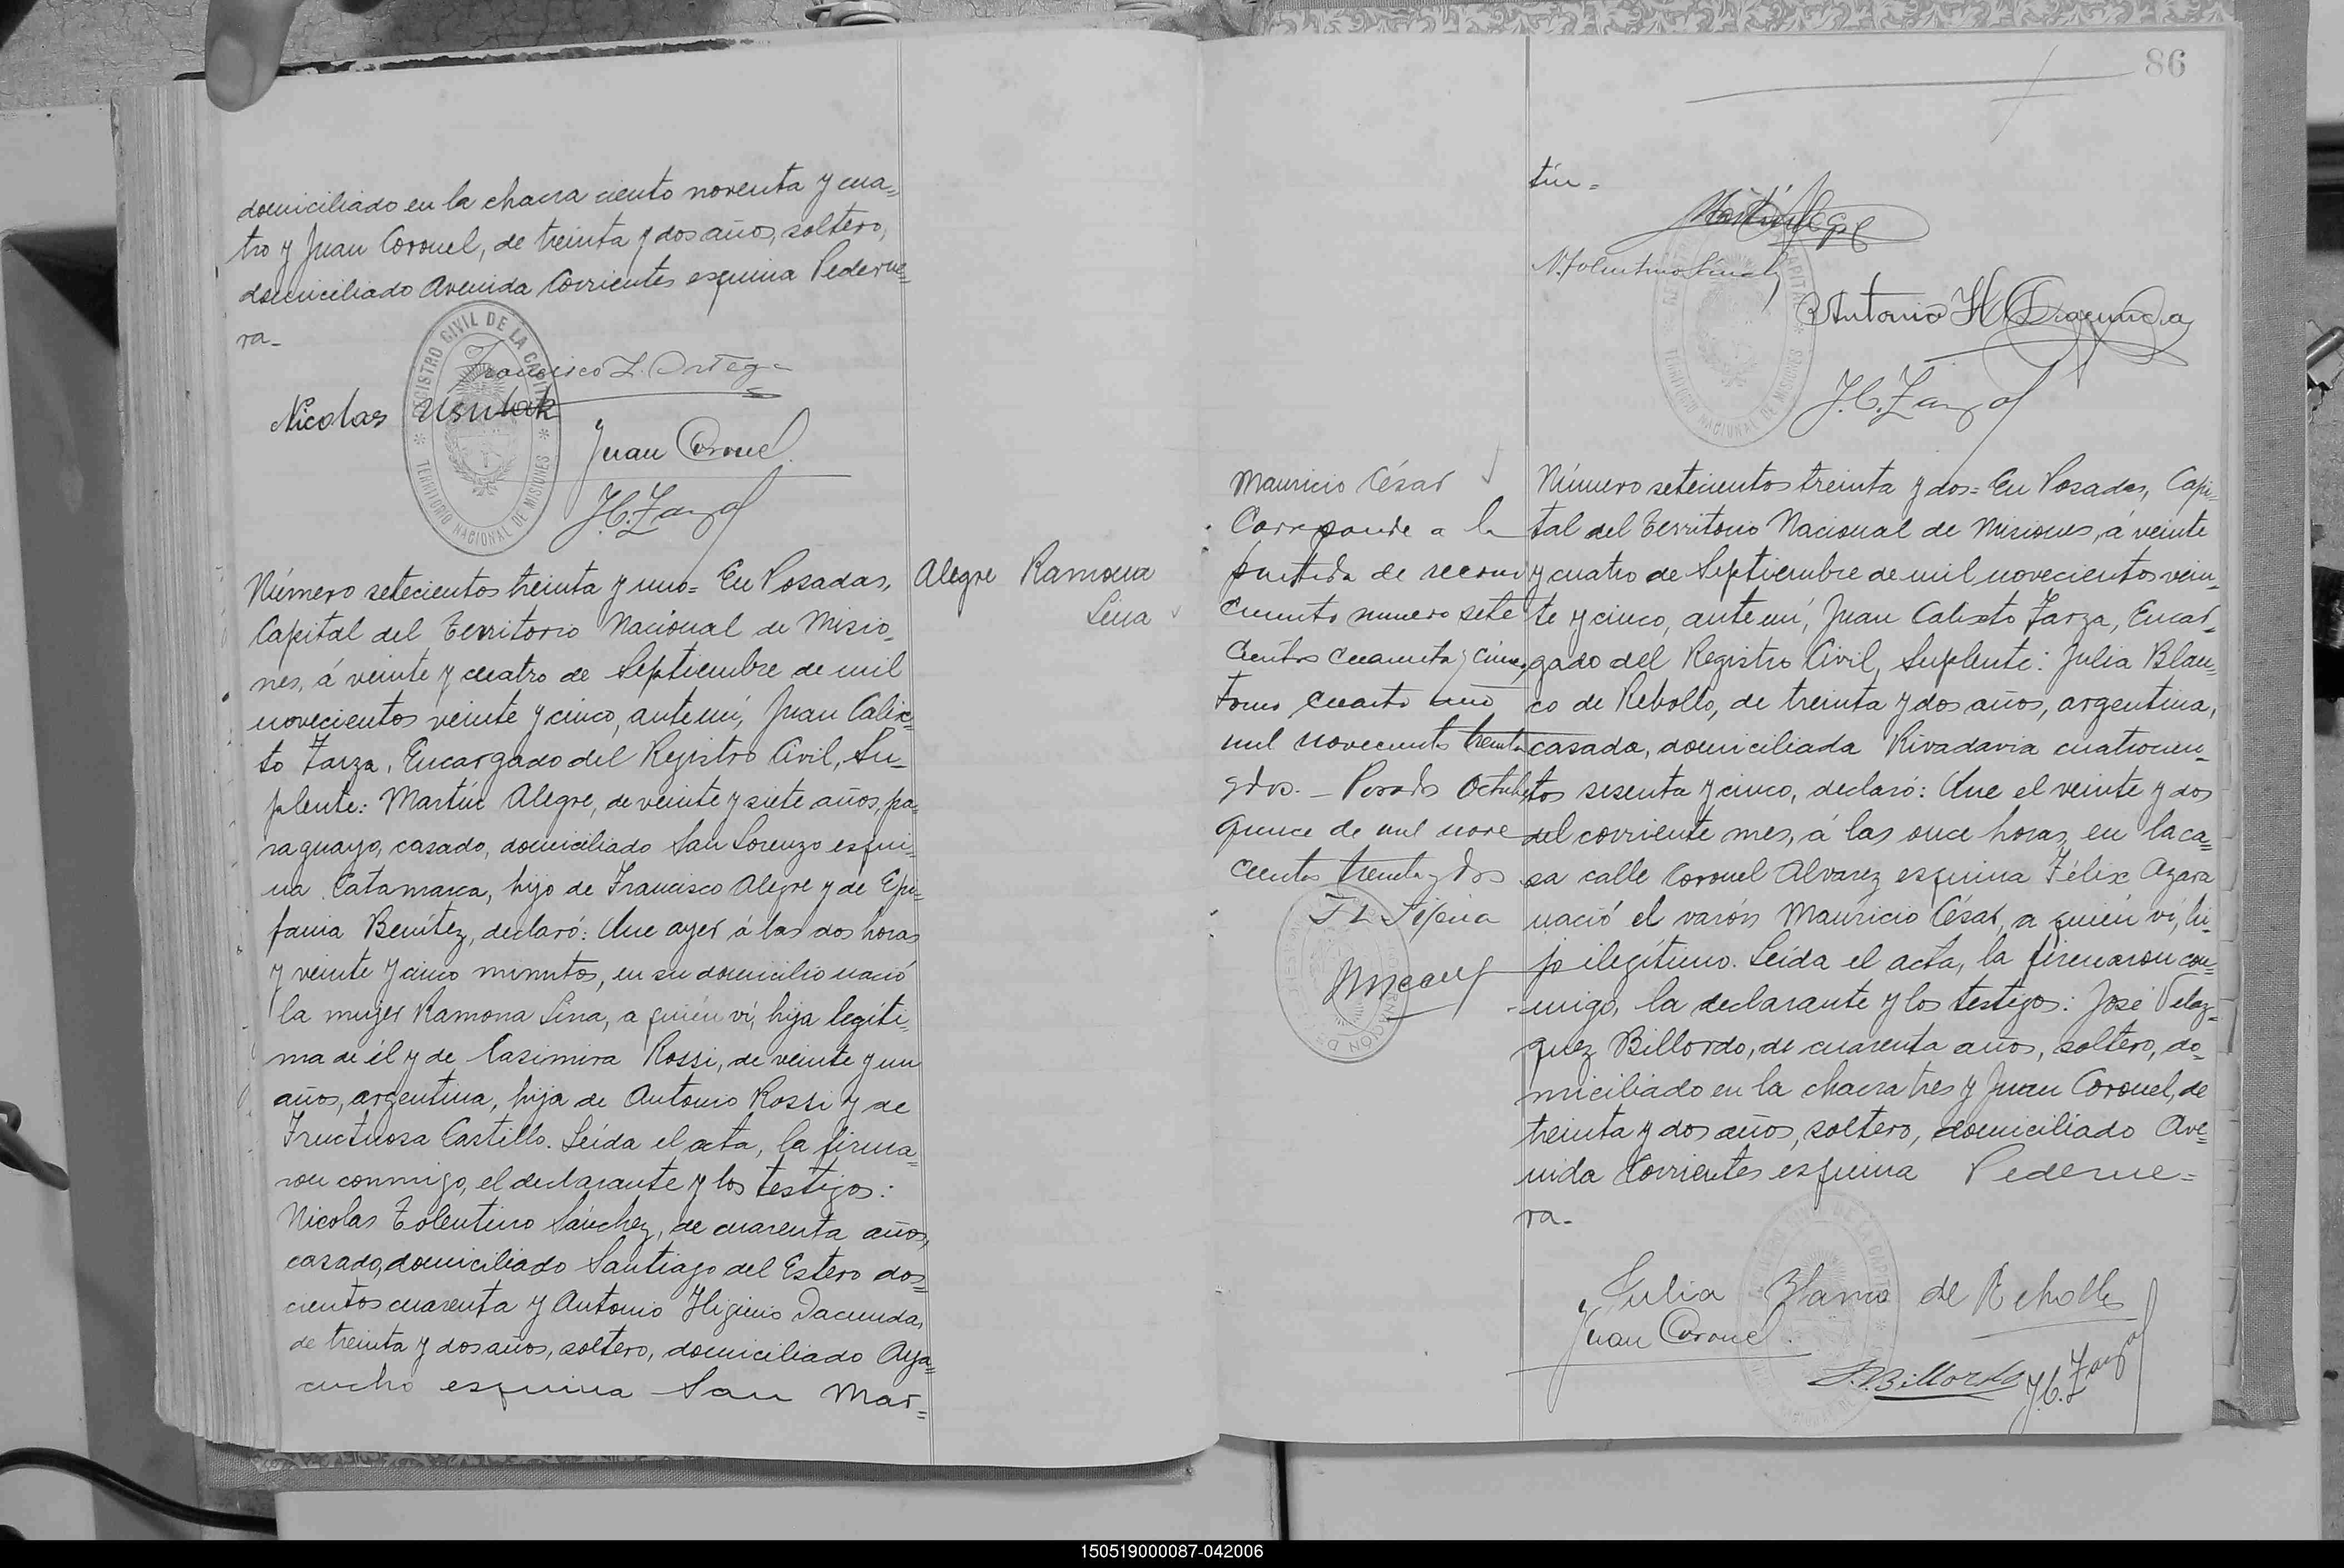 domiciliado en la chacra ciento noventa y cua=
tro y Juan Coronel, de treinta y dos años, soltero,
domiciliado Avenida Corrientes esquina Pederne=
ra_
REGISTRO CIVIL DE LA CAPITAL
TERRITORIO NACIONAL DE MISIONES
Francisco L. Ortega
Nicolas
Juan Coronel
J.C. Zarza
Número setecientos treinta y uno= En Posadas,
Capital del Territorio Nacional de Misio_
nes, á veinte y cuatro de Septiembre de mil
novecientos veinte y cinco, ante mí, Juan Calix=
to Zarza, Encargado del Registro Civil, Su_
plente: Martín Alegre, de veinte y siete años, pa=
raguayo, casado, domiciliado San Lorenzo esqui=
na Catamarca, hijo de Francisco Alegre y de Epi=
fania Benítez, declaró: Que ayer á las dos horas
y veinte y cinco minutos, en su domicilio nació
la mujer Ramona Lina, a quién ví, hija legíti=
ma de él y de Casimira Rossi, de veinte y un
años, argentina, hija de Antonio Rossi y de
Fructuosa Castillo. Leída el acta, la firma=
ron conmigo, el declarante y los testigos:
Nicolas Tolentino Sánchez, de cuarenta años,
casado, domiciliado Santiago del Estero dos=
cientos cuarenta y Antonio Higinio Dacunda,
de treinta y dos años, soltero, domiciliado Aya=
cucho esquina San Mar=
Alegre Ramona
Lina
86
tín=
Martín Alegre
N. Tolentino Sánchez
Antonio H. Dacunda
J.C. Zarza
Mauricio César
Corresponde a la
partida de recono
cimiento numero sete
cientos cuarenta y cinco,
tomo cuarto año
mil novecientos treinta
y dos. _ Posadas Octubre
quince de mil nove
cientos treinta y dos
Número setecientos treinta y dos= En Posadas, Capi=
tal del Territorio Nacional de Misiones, á veinte
y cuatro de Septiembre de mil novecientos vein=
te y cinco, ante mí, Juan Calixto Zarza, Encar=
gado del Registro Civil, Suplente: Julia Blan=
co de Rebollo, de treinta y dos años, argentina,
casada, domiciliada Rivadavia cuatrocien=
tos sesenta y cinco, declaró: Que el veinte y dos
del corriente mes, á las once horas, en la ca=
sa calle Coronel Alvarez esquina Félix Azara
nació el varón Mauricio César, a quién ví, hi=
jo ilegítimo. Leída el acta, la firmaron con=
migo, la declarante y los testigos: José Velaz=
quez Billordo, de cuarenta años, soltero, do=
miciliado en la chacra tres y Juan Coronel, de
treinta y dos años, soltero, domiciliado Ave=
nida Corrientes esquina Pederne=
ra_
Julia Blanco de Rebollo
Juan Coronel
J.V. Billordo
J.C. Zarza
150519000087-042006